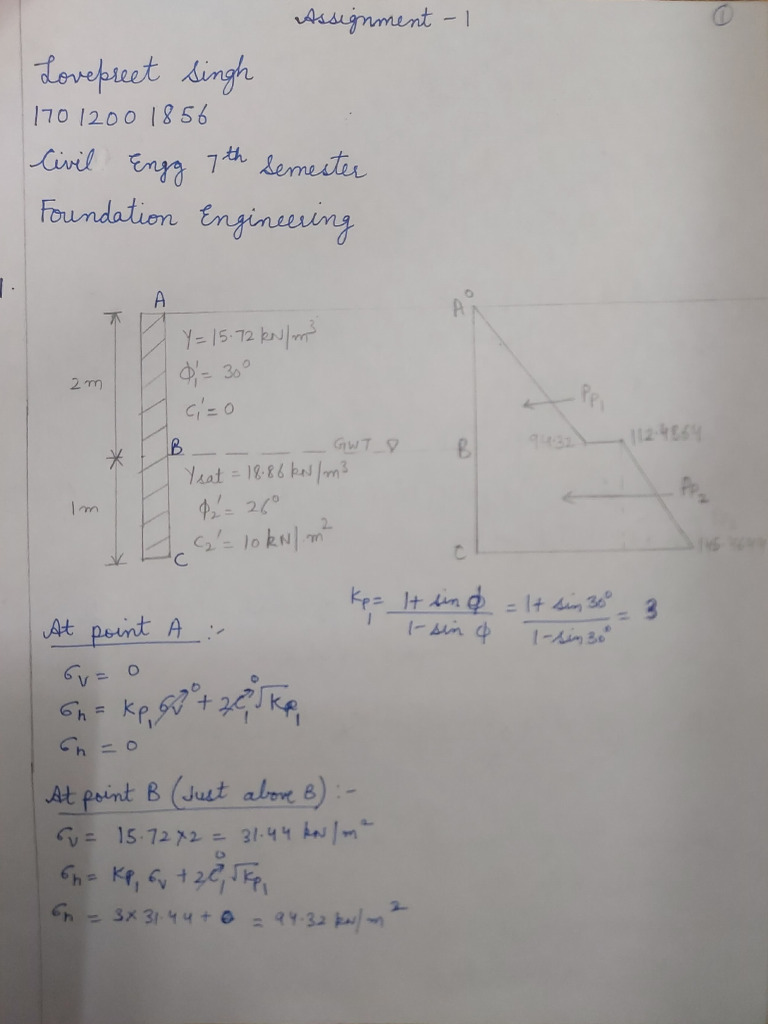 Assignment - 1
①
Lovepreet Singh
170 1200 1856
Civil Engg 7th Semester
Foundation Engineering
1.
A
γ = 15.72 kN/m³
2m
ϕ₁' = 30°
C₁' = 0
B
GWT ▽
γsat = 18.86 kN/m³
1m
ϕ₂' = 26°
C₂' = 10 kN/m²
C
A 0
Pp₁
B
94.32
112.4864
Pp₂
C
Kp₁ = 1 + sin ϕ / 1 - sin ϕ = 1 + sin 30° / 1 - sin 30° = 3
At point A :-
σv = 0
σh = Kp₁ σv⁰ + 2C₁'⁰ √Kp₁
σh = 0
At point B (Just above B) :-
σv = 15.72 × 2 = 31.44 kN/m²
σh = Kp₁ σv + 2C₁'⁰ √Kp₁
σh = 3 × 31.44 + 0 = 94.32 kN/m²